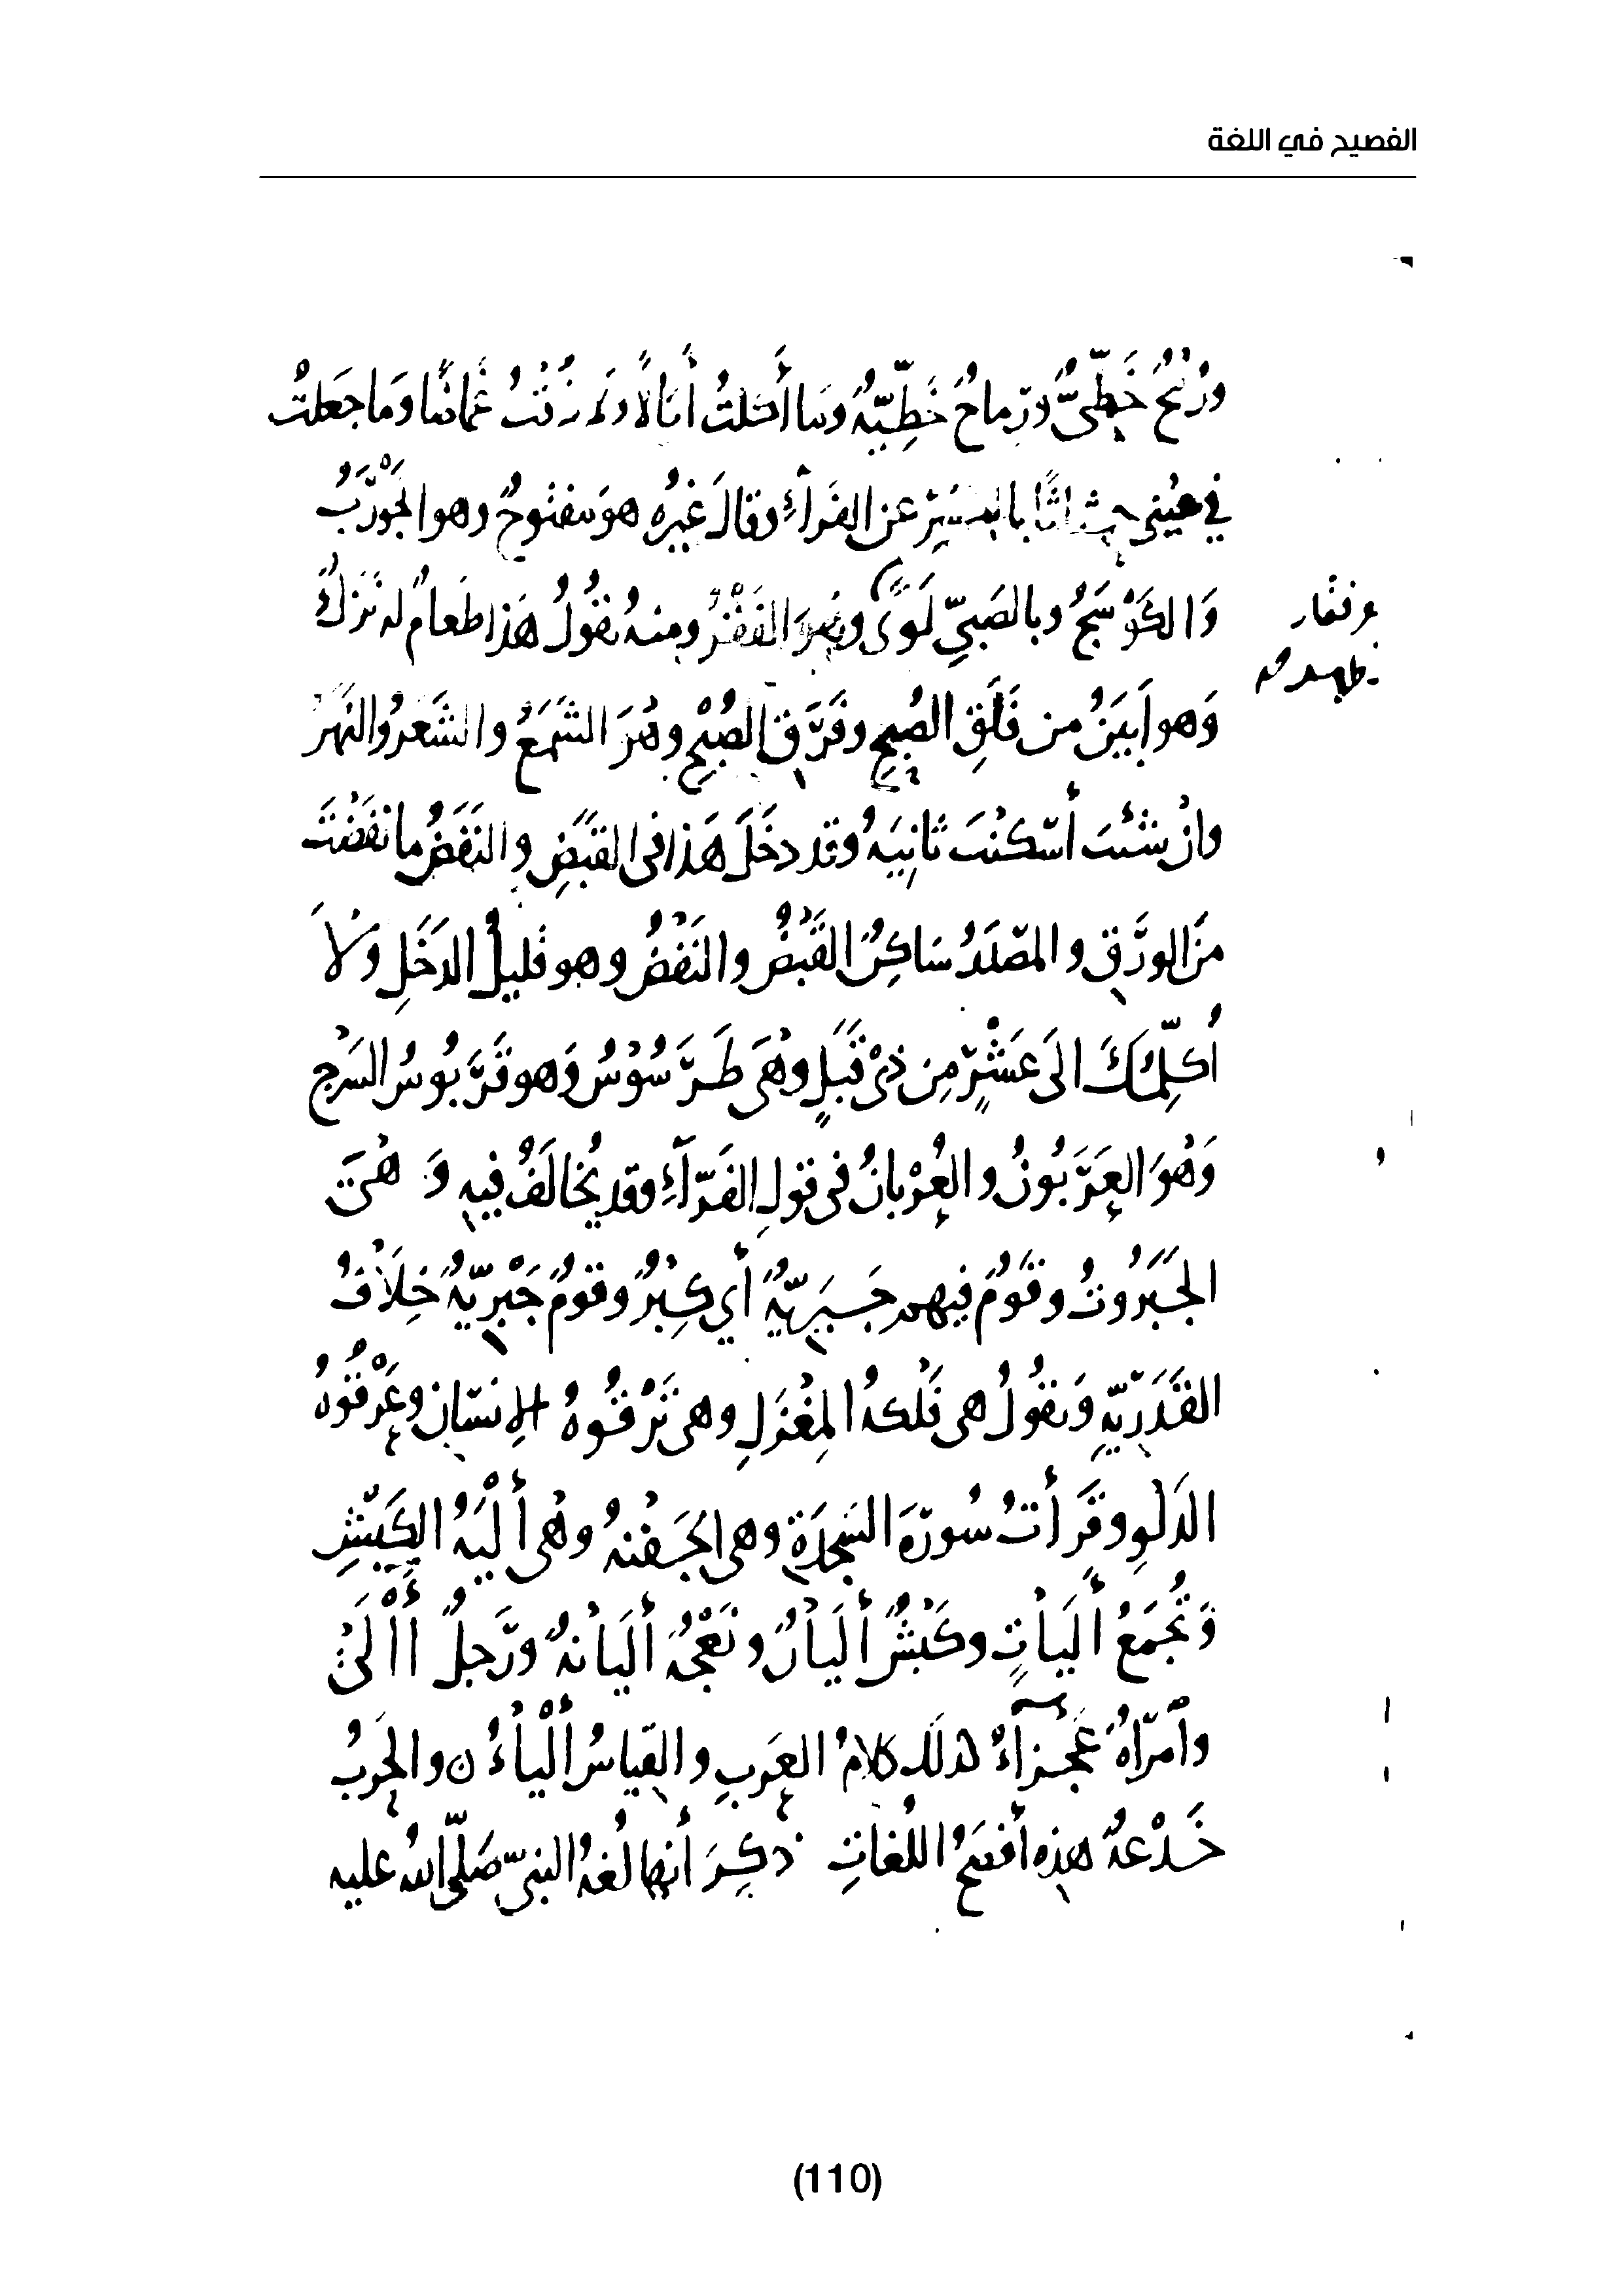 الفصيح في اللغة
ورُمْحٌ خَطِّيٌّ ورِماحٌ خَطِّيَّةٌ وما أكلتُ أَكَالًا ولا ذُقْتُ غَمَاضًا وَما جَعَلتُ
في عيني حثاثًا بالكسر عن الفرّاءِ وقالَ غيرُه هوَ مفتُوحٌ وهوا لجَوْرَبُ
وَالكَوْسَجُ وبالصَبيِّ لَوًى وهوَ الفَقْرُ ومنهُ تقُولُ هَذا طَعامٌ له نَزَلٌ
وَهو أَبيَنُ من فَلَقِ الصُبحِ وفَرَقِ الصُبْحِ وهْوَ الشَمَعُ والشَعَرُ والنَهَرُ
وانْ شئتَ أسْكنْتَ ثانيَهُ وقد دخَلَ هَذا في القَبَضِ والنَفَضُ ما نفَضْتَ
مِنَ الورَقِ والمصْدَرُ سَاكِنٌ القَبْضُ والنَفْضُ وهو قليلُ الدَخَلِ وَلاَ
أُكلِّمُكَ الَى عَشْرٍ مِن ذِى قَبَلٍ وهْيَ طَرَسُوْسُ وَهو قَرَبُوسُ السَرْجِ
وَهْوَ العَرَبُونُ والعُرْبانُ في قولِ الفَرّآءِ وقد يُخالَفُ فيهِ وَ هْيَ
الجَبَرُوتُ وقَوْمٌ فيهم جَبَرِيّةٌ أي كِبْرٌ وقومٌ جَبْرِيّةٌ خِلَافُ
القَدَرِيّةِ وَتقُولُ هي فَلْكةُ المِغْزَلِ وهي تَرْقُوةُ الإِنسَانِ وعَرْقُوَةُ
الدَلْوِ وقَرَأْتُ سُورَةَ السَجدَةِ وهي الجَفْنةُ وهْي أَلْيَةُ الكَبْشِ
وَتُجمَعُ أَلَيَاتٍ وكَبْشٌ أَلَيَانٌ ونَعْجةٌ أَلَيَانةٌ ورَجلٌ أَالَى
وأمرَأةٌ عَجْزاءُ كذلك كلامُ العَرَبِ والقياسُ أَلْياءُ ن والحَربُ
خَدْعةٌ هذِه أفصَحُ اللُغاتِ ذُكِرَ أنها لُغةُ النبيِّ صَلّى اللهُ عليه
(110)